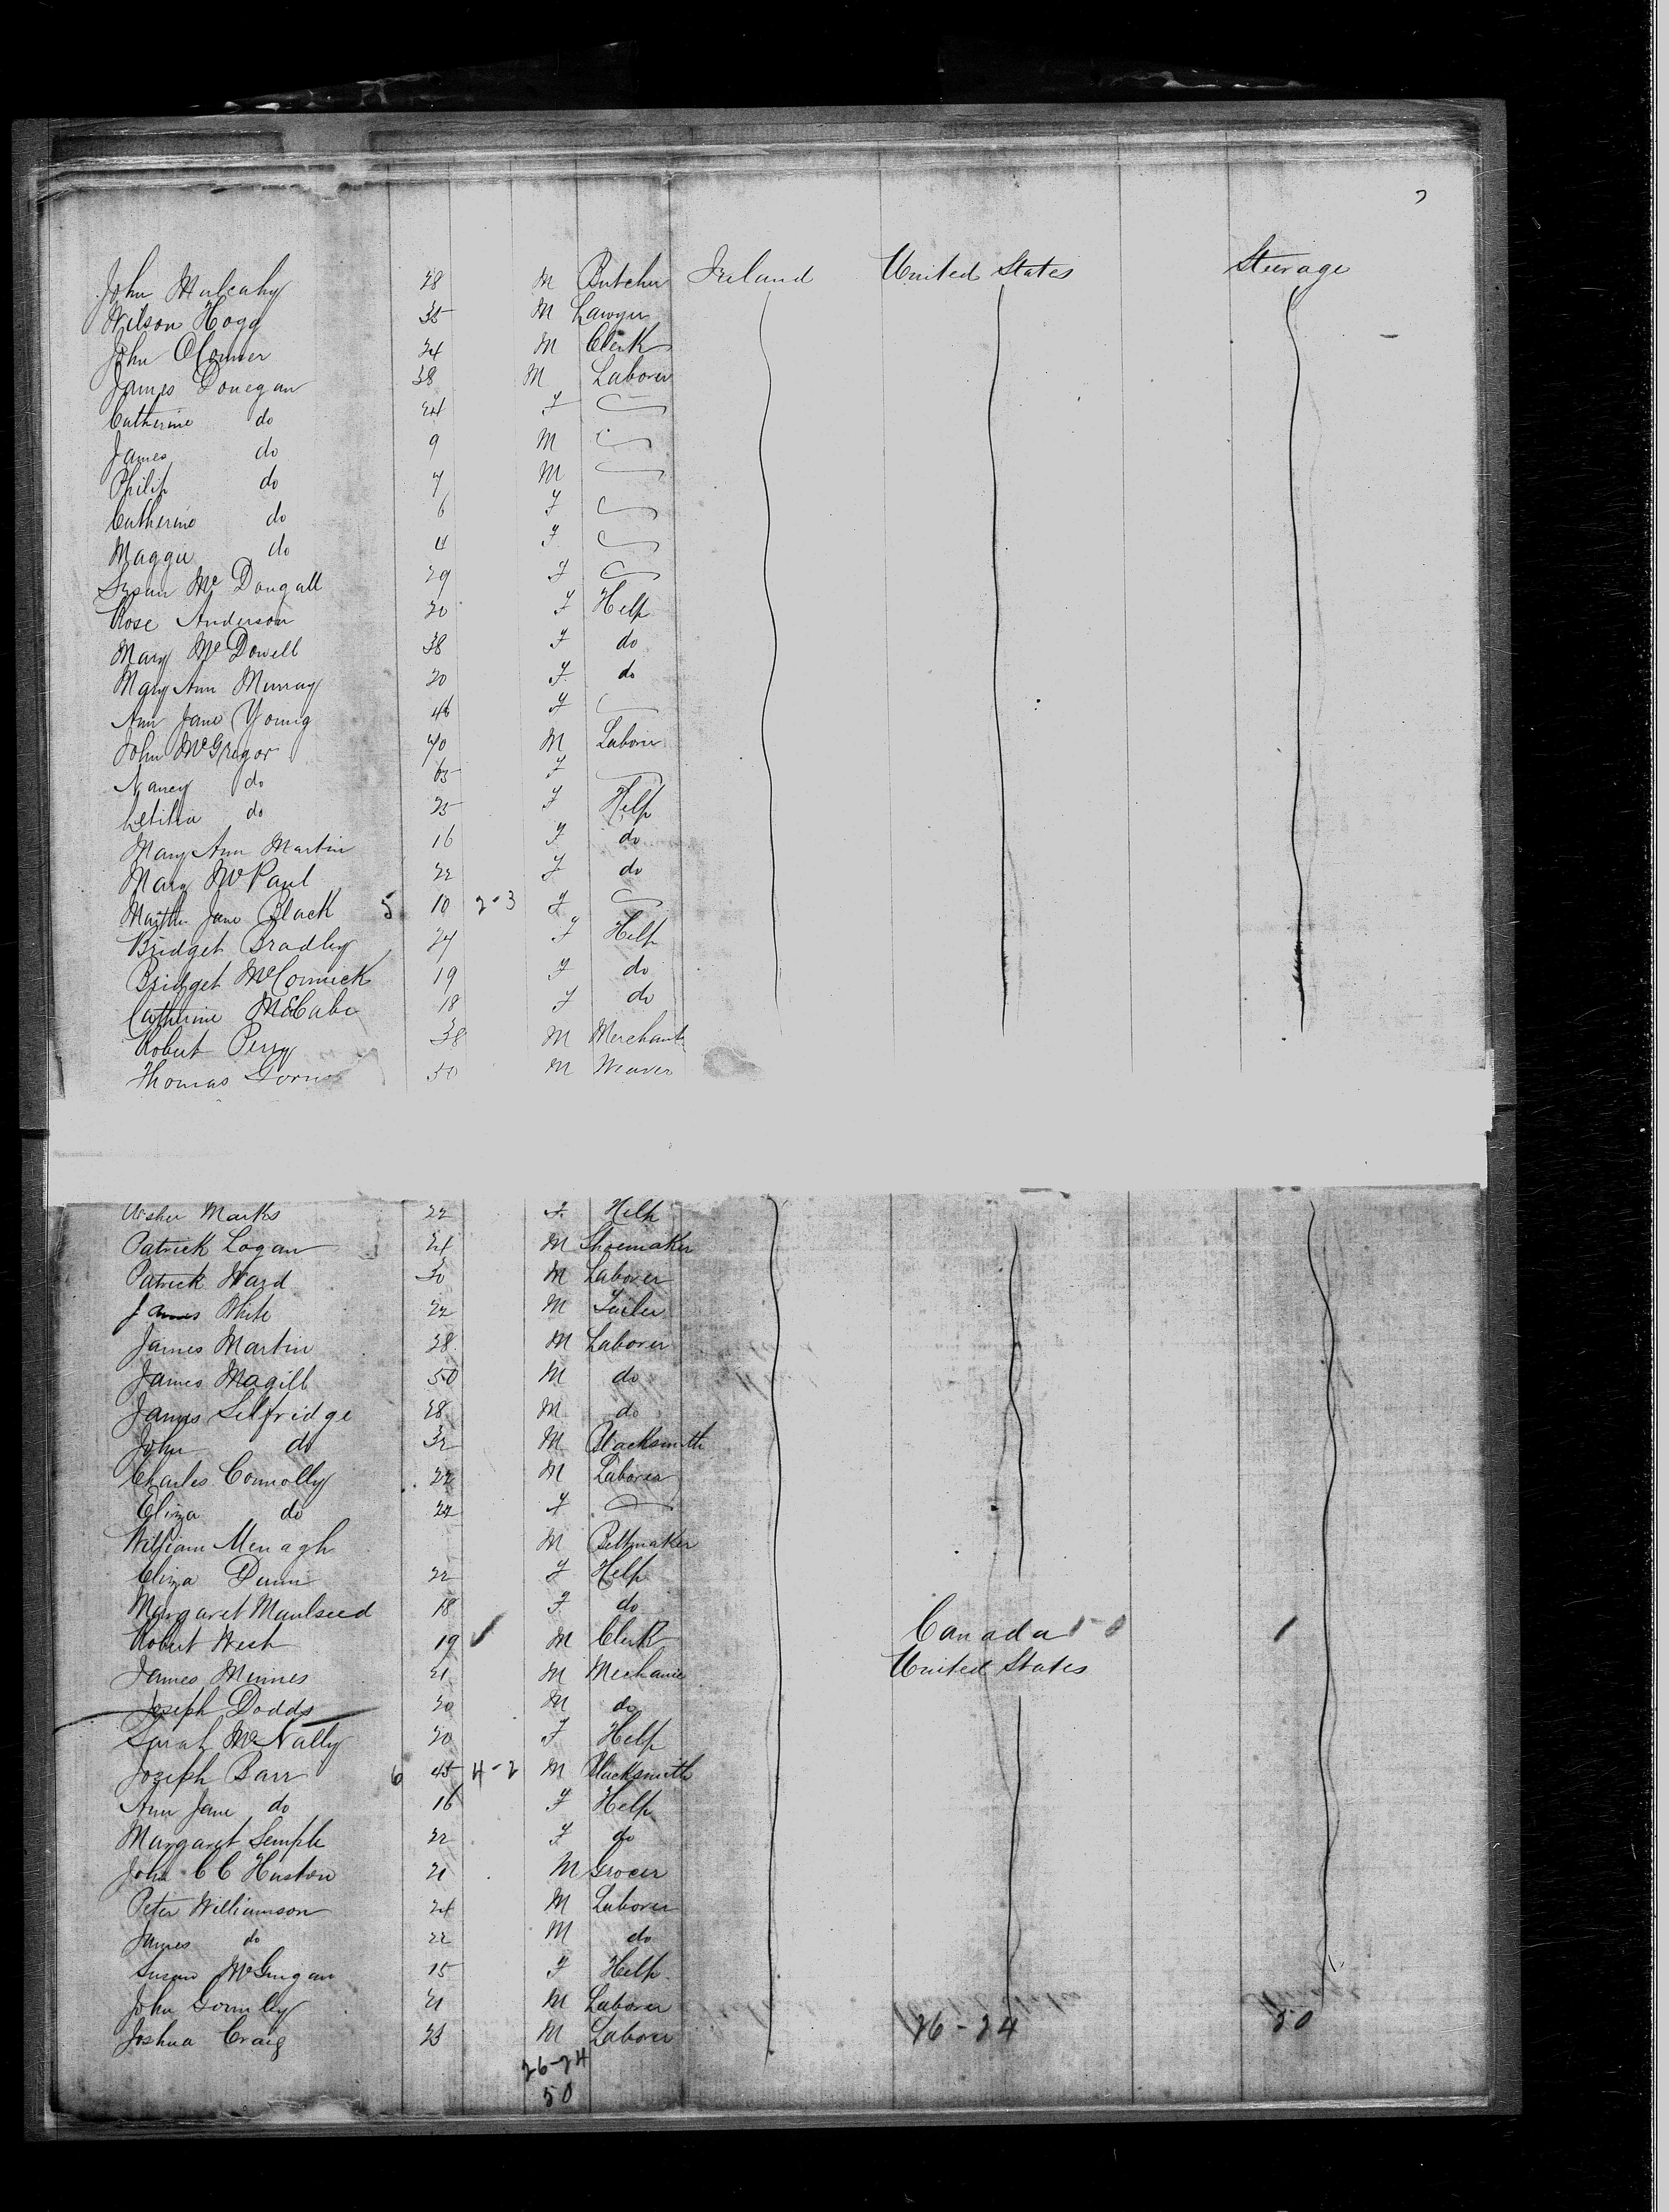 John Mulcahy 28 M Butcher Ireland United States Steerage
Wilson Hogg 35 M Lawyer
John OConner 24 M Clerk
James Donegan 38 M Laborer
Catherine do 24 F
James do 9 M
Philip do 7 M
Catherine do 6 F
Maggie do 4 F
Susan McDougall 29 F
Rose Anderson 20 F Help
Mary McDowell 38 F do
Mary Ann Murray 20 F do
Ann Jane Young 46 F
John McGregor 40 M Laborer
Nancy do 65 F
Letitia do 25 F Help
Mary Ann Martin 16 F do
Mary McPaul 22 F do
Martha Jane Black 5 10 2-3 F
Bridget Bradley 24 F Help
Bridget McCormick 19 F do
Catherine McCabe 18 F do
Robert Perry 38 M Merchant
Thomas 50 M Weaver
Marks 22 F Help
Patrick Logan 24 M Shoemaker
Patrick Ward 30 M Laborer
James White 22 M Tailer
James Martin 28 M Laborer
James Magill 50 M do
James Selfridge 28 M do
John do 32 M Blacksmith
Charles Connolly 22 M Laborer
Eliza do 22 F
William Menagh M Beltmaker
Eliza Dunn 22 F Help
Margaret Maulseed 18 F do
Robert West 19 M Clerk Canada 1-0 1
James Minnes 21 M Mechanic United States
Joseph Dodds 20 M do
Sarah McNally 20 F Help
Joseph Barr 6 45 4-2 M Blacksmith
Ann Jane do 16 F Help
Margaret Semple 22 F do
John C C Huston 21 M Grocer
Peter Williamson 24 M Laborer
James do 22 M do
Susan McGuigan 15 F Help
John Gormley 21 M Laborer
Joshua Craig 23 M Laborer 26-24 50
26-24
50